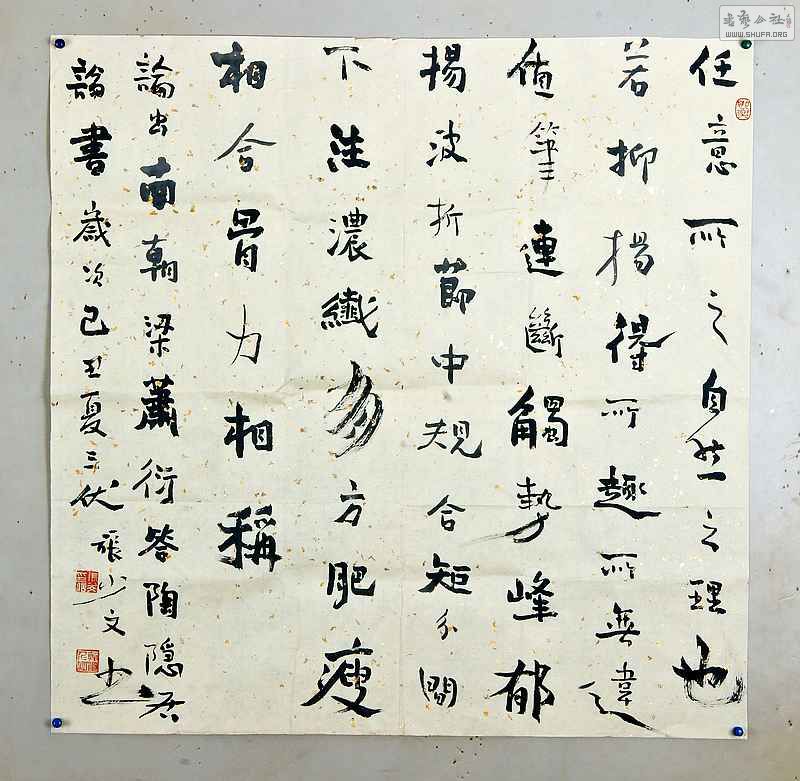 任意所之自然之理也
若抑揚得所趣所無違
值筆連斷觸勢峰郁
揚波折節中規合矩分間
下注濃纖有方肥瘦
相合骨力相稱
論出南朝梁蕭衍答陶隱居
論書歲次己丑夏三伏張少文書
書藝公社
WWW.SHUFA.ORG